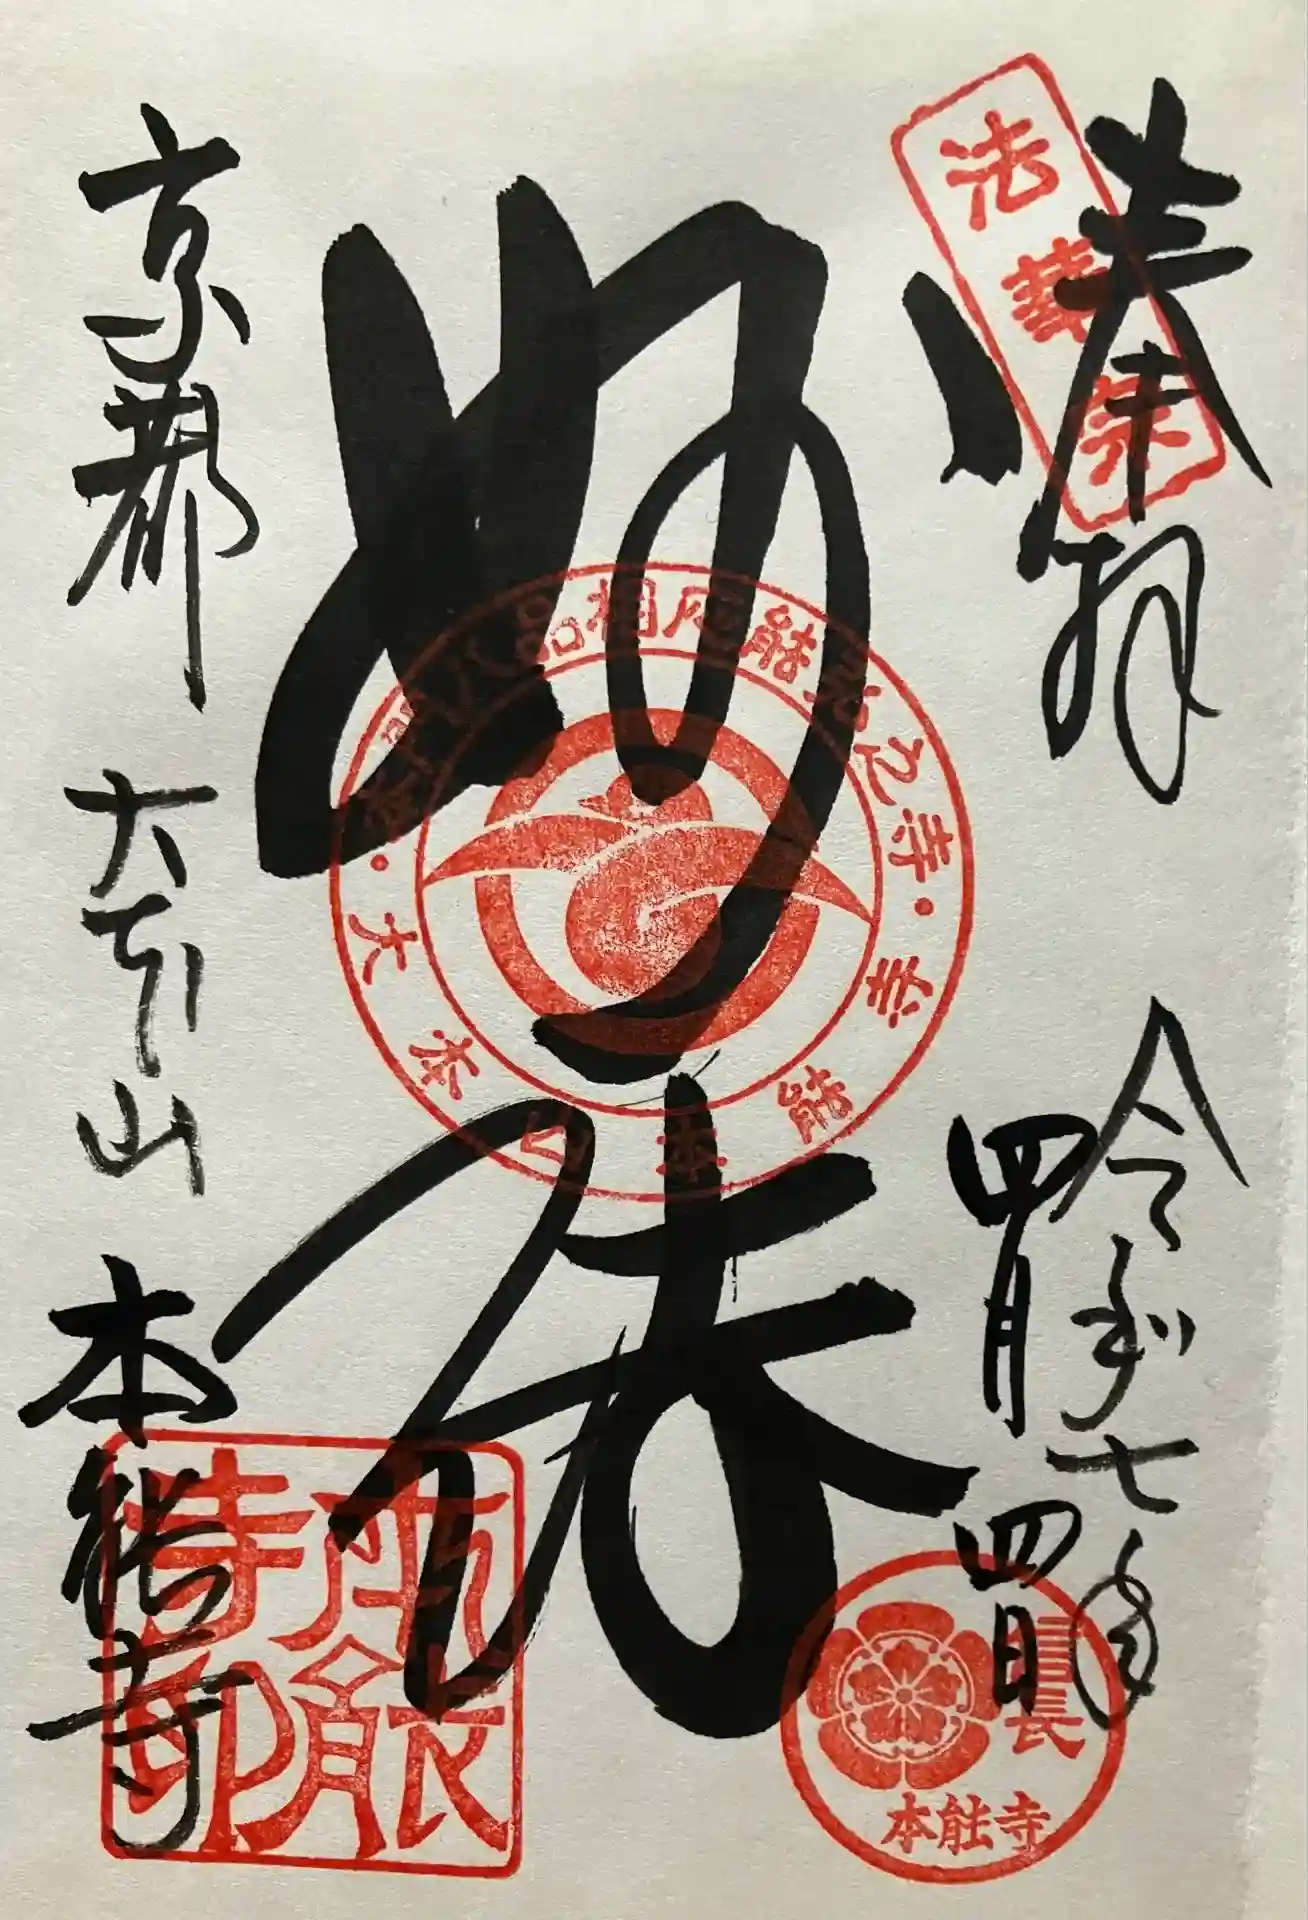 奉拝
令和七年
四月四日
妙法
京都 大本山 本能寺
法華宗
本能寺印
本能寺